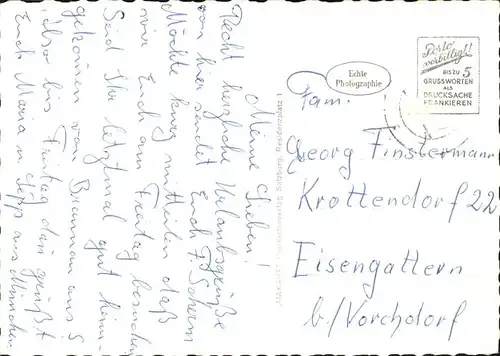 Meine Lieben!
Recht herzliche Urlaubsgrüße
von hier sendet Euch F.
Möchte kurz mitteilen daß
wir Euch am Freitag besuchen
Seid Ihr letztmal gut heim-
gekommen von Braunau aus?
Also bis Freitag dann grüßt
Euch Maria u. Sepp aus München
Echte
Photographie
Porto
verbilligt!
BIS ZU 5
GRUSSWORTEN
ALS
DRUCKSACHE
FRANKIEREN
Fam.
Georg Finstermann
Krottendorf 22
Eisengattern
b/Vorchdorf
Salzburg, Residenzplatz